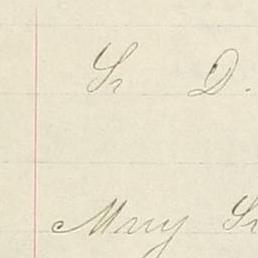 Sr D.
Mary Sr